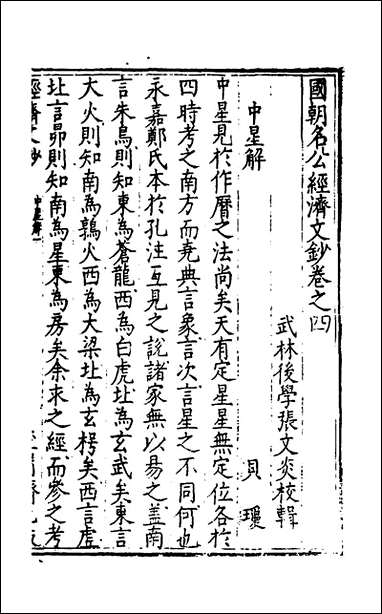 國朝名公經濟文鈔卷之四
武林後學張文炎校輯
中星解 貝瓊
中星見於作曆之法尚矣天有定星星無定位各於
四時考之南方而堯典言象言次言星之不同何也
永嘉鄭氏本於孔注互見之說諸家無以易之盖南
言朱鳥則知東為蒼龍西為白虎北為玄武矣東言
大火則知南為鶉火西為大梁北為玄枵矣西言虛
北言昴則知南為星東為房矣余求之經而參之考
經濟文鈔